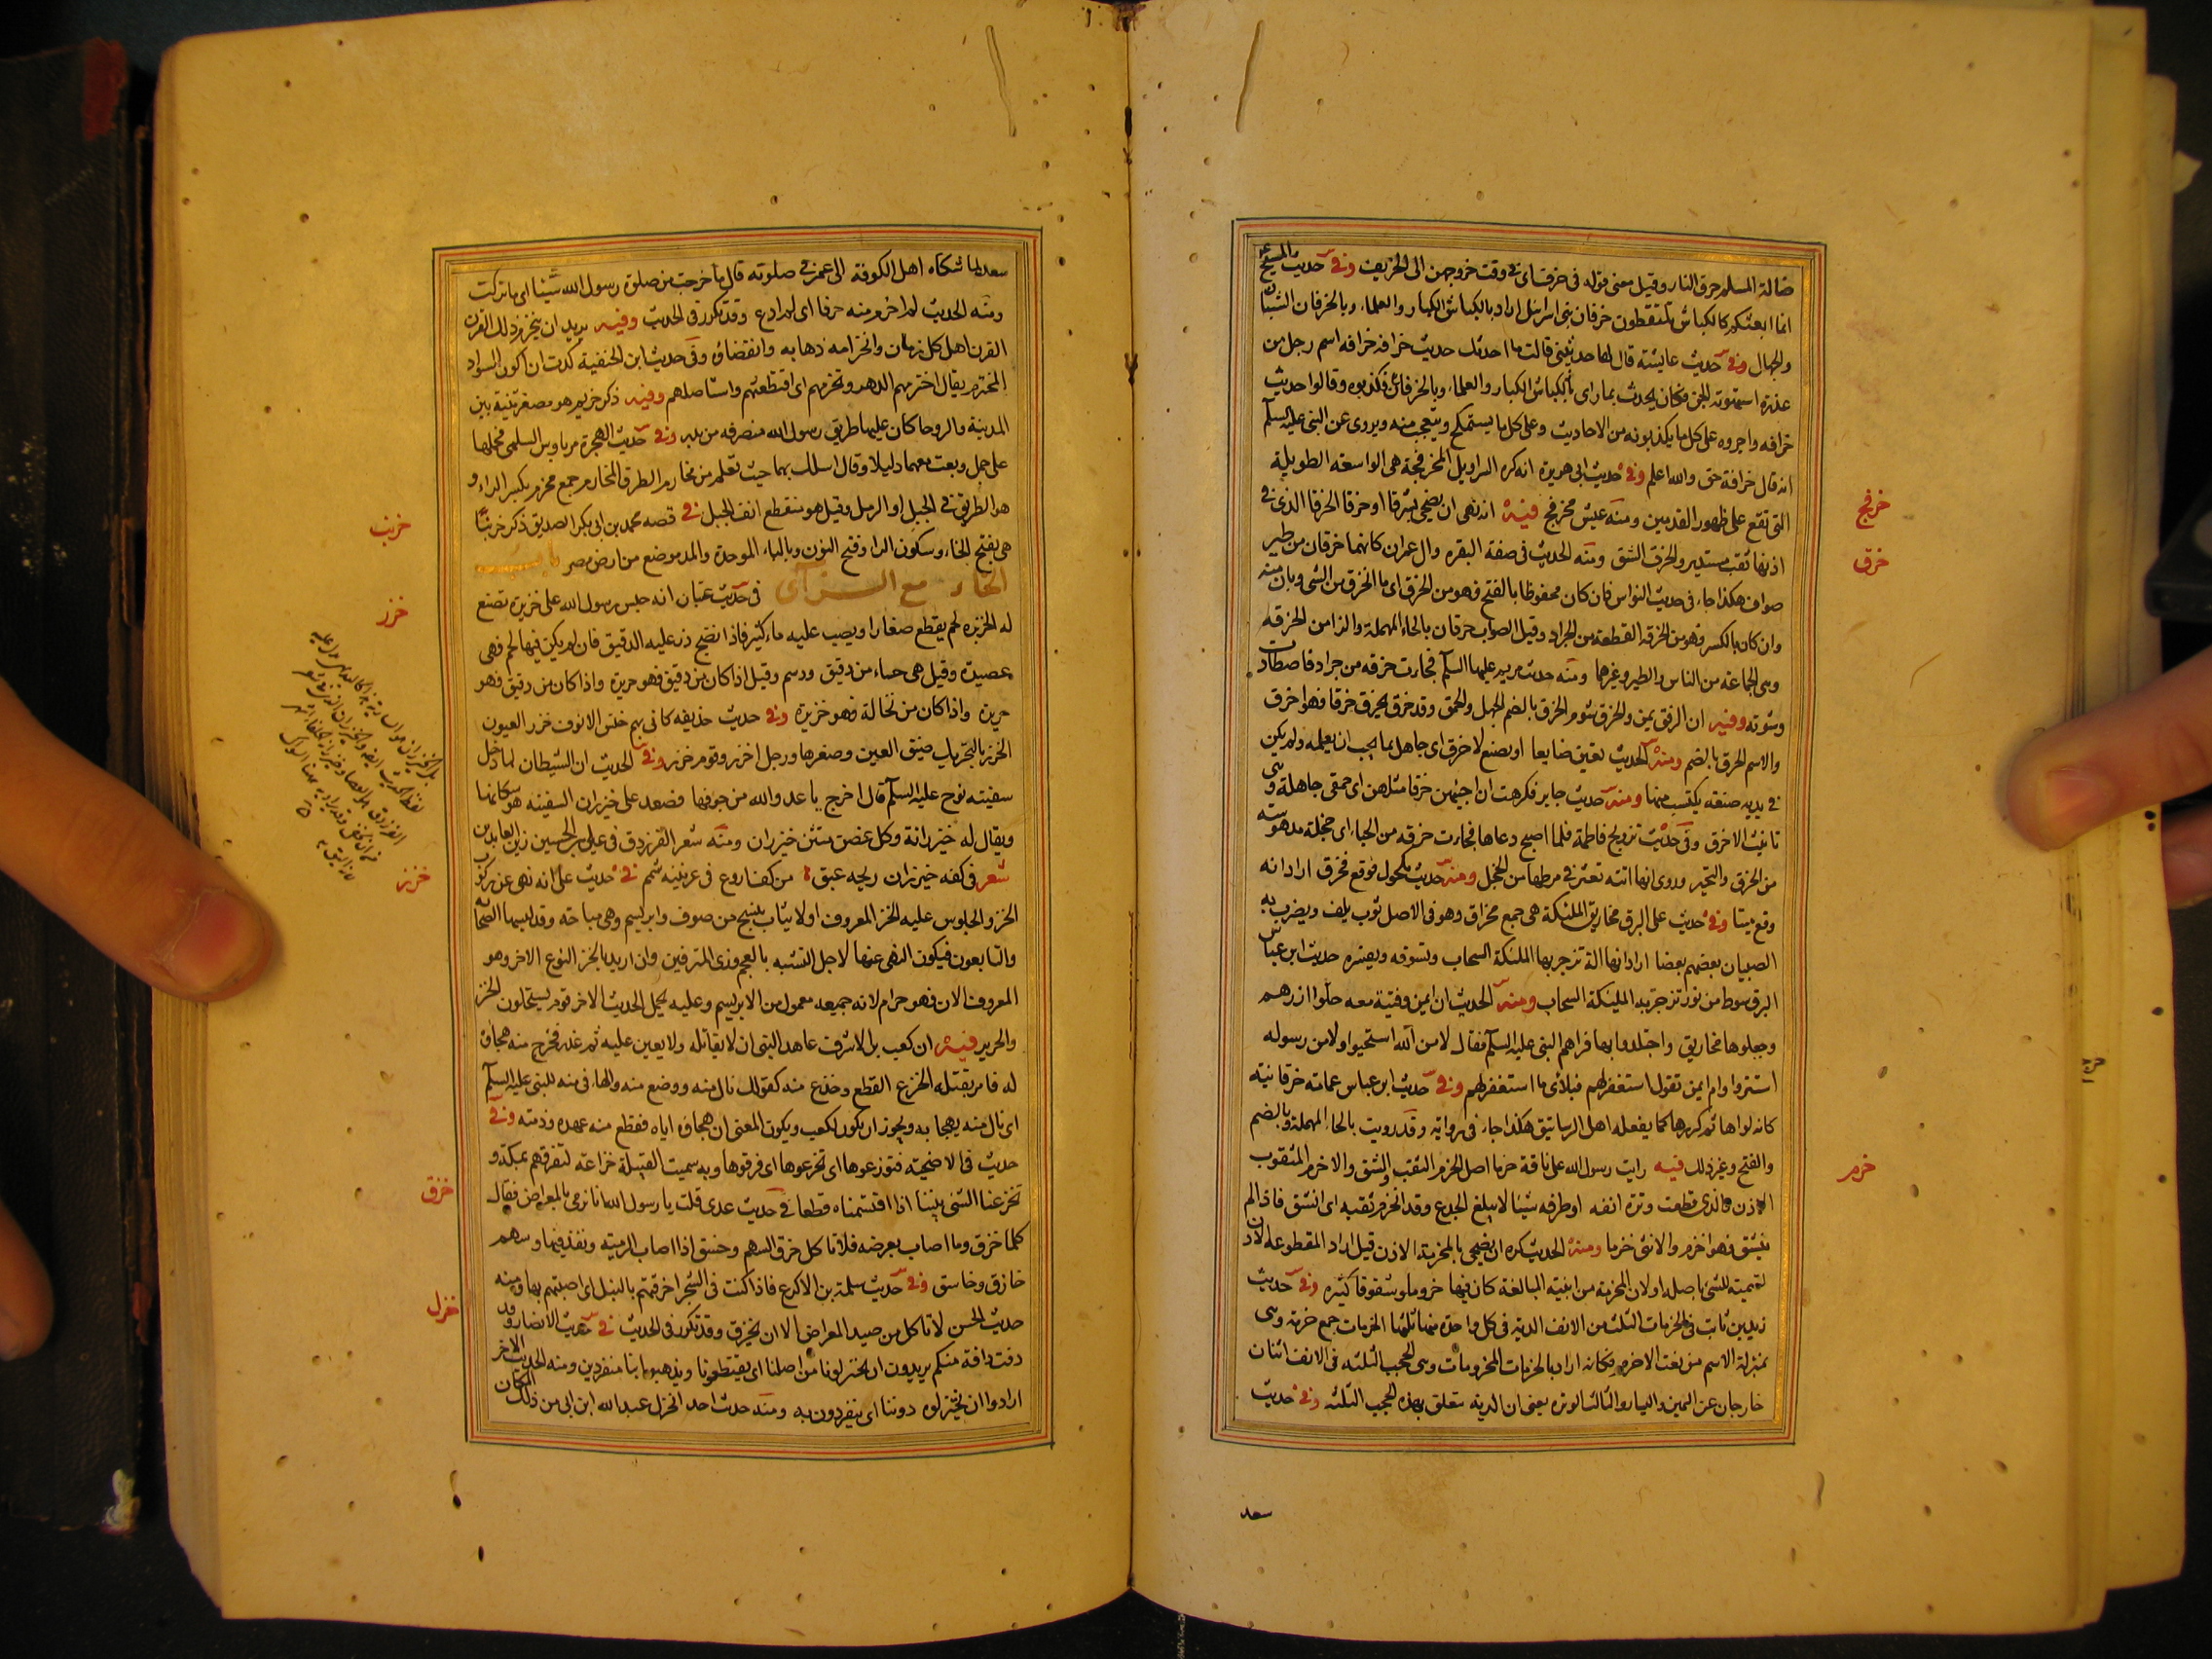 ضالة المسلم حرق النار وقيل معنى قوله فى خرفتاى فى وقت خروجهن الى الخريف وفى حديث المسيح
انما ابعثكم كالكباش تلتقطون خرفان بنى اسرائيل اراد بالكباش الكبار والعلماء وبالخرفان الشبان
والجهال وفى حديث عايشه قال لها حدثينى قالت ما احدثك حديث خرافه خرافه اسم رجل من
عذرة استهوته الجن فكان يحدث بما راى فكذبوه وقالوا حديث
خرافه واجروه على كل ما يكذبونه من الاحاديث وعلى كل ما يستملح ويتعجب منه ويروى عن النبى عليه السلم
انه قال خرافة حق والله اعلم وفى حديث ابى هريرة انه كره السراويل المخرفجة هى الواسعة الطويلة
التى تقع على ظهور القدمين ومنه عيش مخرفج فيه انه نهى ان يضحى بشرقا او خرقا الخرقا الذى فى
اذنها ثقب مستدير والخرق الشق ومنه الحديث فى صفة البقره وال عمران كانهما خرقان من طير
صواف هكذا جاء فى حديث النواس فان كان محفوظا بالفتح فهو من الخرق اى ما انخرق من الشى وبان منه
وان كان بالكسر فهو من الخرقة القطعة من الجراد وقيل الصواب حزقان بالحاء المهملة والزا من الحزقة
وهى الجماعة من الناس والطير وغيرها ومنه حديث مريم عليها السلم فجاءت خرقه من جراد فاصطادت
وشوته وفيه ان الرفق يمن والخرق شوم الخرق بالضم الجهل والحمق وقد خرق يخرق خرقا فهو اخرق
والاسم الخرق بالضم ومنه الحديث تعين ضايعا او تصنع لاخرق اى جاهل بما يجب ان يعمله ولم يكن
فى يديه صنعة يكتسب بها ومنه حديث جابر فكرهت ان اجيئهن خرقا مثلهن اى حمقى جاهلة وهى
تانيث الاخرق وفى حديث تزويج فاطمة فلما اصبح دعاها فجاءت خرقه من الحياء اى خجلة مدهوشة
من الخرق والتحير وروى انها اتته تعثر فى مرطها من الخجل ومنه حديث مكحول فوقع فخرق اراد انه
وقع ميتا وفى حديث على البرق مخاريق الملئكة هى جمع مخراق وهو فى الاصل ثوب يلف ويضرب به
الصبيان بعضهم بعضا اراد انها الة تزجر بها الملئكة السحاب وتسوقه ويفسره حديث ابن عباس
البرق سوط من نور تزجر به الملئكة السحاب ومنه الحديث ان ايمن وفتية معه حلوا ازرهم
وجعلوها مخاريق واجتلدوا بها فراهم النبى عليه السلم فقال لا من الله استحيوا ولا من رسوله
استتروا وام ايمن تقول استغفر لهم فبلاى ما استغفر لهم وفى حديث ابن عباس عمامة خرقانية
كانه لواها ثم كورها كما يفعله اهل الرساتيق هكذا جاء فى رواية وقد رويت بالحاء المهملة وبالضم
والفتح وغير ذلك فيه رايت رسول الله على ناقة خرما اصل الخرم الثقب والشق والاخرم المثقوب
الاذن والذى قطعت وترة انفه او طرفه شيئا لا يبلغ الجدع وقد انخرم ثقبه اى انشق فاذا لم
ينشق فهو اخزم والانثى خزما ومنه الحديث كره ان يضحى بالمخرمة الاذن قيل اراد المقطوعة الاذن
تسمية للشئ باصله او لان المخرمة من ابنية المبالغة كان فيها خروما وشقوقا كثيره وفى حديث
زيد بن ثابت فى الخرمات الثلث من الانف الدية فى كل واحدة منها ثلثها الخرمات جمع خرمة وهى
بمنزلة الاسم من نعت الاخرم فكانه اراد بالخرمات المخرومات وهى الحجب الثلثه فى الانف اثنان
خارجان عن اليمين واليسار والثالث الوتره يعنى ان الدية تتعلق بهذه الحجب الثلثه وفى حديث
خرفج
خرق
خرم
سعد
سعد لما شكاه اهل الكوفة الى عمر فى صلوته قال ما خرمت من صلوة رسول الله شيئا اى ما تركت
ومنه الحديث لم اخرم منه حرفا اى لم ادع وقد تكرر فى الحديث وفيه يريد ان ينخرم ذلك القرن
القرن اهل كل زمان وانخرامه ذهابه وانقضاؤه وفى حديث ابن الحنفية كدت ان اكون السواد
المخترم يقال اخترمهم الدهر وتخرمهم اى اقتطعهم واستاصلهم وفيه ذكر خريم هو مصغر ثنية بين
المدينة والروحا كان عليها طريق رسول الله منصرفه من بدر وفى حديث الهجرة مر باوس السلمى فحملها
على جمل وبعث معهما دليلا وقال اسلك بهما حيث تعلم من مخارم الطرق المخارم جمع مخرم بكسر الراء و
هو الطريق فى الجبل او الرمل وقيل هو منقطع انف الجبل فى قصه محمد بن ابى بكر الصديق ذكر خربنا
هى بفتح الخاء وسكون الرا وفتح النون وبالباء الموحدة والمد موضع من ارض مصر باب
الخاء مع الزاى فى حديث عتبان انه حبس رسول الله على خزيرة تصنع
له الخزيره لحم يقطع صغارا ويصب عليه ماء كثير فاذا نضج ذر عليه الدقيق فان لم يكن فيها لحم فهى
عصيدة وقيل هى حساء من دقيق ودسم وقيل اذا كان من دقيق فهو حريره واذا كان من دقيق فهو
حريرة واذا كان من نخالة فهو خزيرة وفى حديث حذيفه كانى بهم خنس الانوف خزر العيون
الخزر بالتحريك ضيق العين وصغرها ورجل اخزر وقوم خزر وفى الحديث ان الشيطان لما دخل
سفينة نوح عليه السلم قال اخرج يا عدو الله من جوفها فصعد على خيزران السفينه هو سكانها
ويقال له خيزرانة وكل غصن متثن خيزران ومنه شعر الفرزدق فى على بن الحسين زين العابدين
شعر فى كفه خيزران ريحه عبق من كف اروع فى عرنينه شمم فى حديث على انه نهى عن ركوب
الخز والجلوس عليه الخز المعروف اولا ثياب ينسج من صوف وابريسم وهى مباحة وقد لبسها الصحابه
والتابعون فيكون النهى عنها لاجل التشبه بالعجم وزى المترفين وان اريد بالخز النوع الاخر وهو
المعروف الان فهو حرام لانه جميعه معمول من الابريسم وعليه يحمل الحديث الاخر قوم يستحلون الخز
والحرير فيه ان كعب بن الاشرف عاهد النبى ان لا يقاتله ولا يعين عليه ثم غدر فخزع منه هجاؤه
له فامر بقتله الخزع القطع وخزع منه كقولك نال منه ووضع منه والهاء فى منه للنبى عليه السلم
اى نال منه بهجائه ويجوز ان يكون لكعب ويكون المعنى ان هجاؤه اياه فقطع منه عهده وذمته وفى
حديث فى الاضحية فتوزعوها اى تخزعوها اى فرقوها وبه سميت القبيلة خزاعة لتفرقهم بمكة و
تخزعنا الشئ بيننا اذا اقتسمناه قطعا فى حديث عدى قلت يا رسول الله انا نرمى بالمعراض فقال
كل ما خزق وما اصاب بعرضه فلا تاكل خزق السهم وخسق اذا اصاب الرمية ونفذ فيها وسهم
خازق وخاسق وفى حديث سلمة بن الاكوع فاذا كنت فى الشجراء خزقتهم بالنبل اى اصبتهم بها ومنه
حديث الحسن لا تاكل من صيد المعراض الا ان يخزق وقد تكرر فى الحديث فى حديث الانصار وقد
دفت دافة منكم يريدون ان يختزلونا من اصلنا اى يقتطعونا ويذهبوا بنا منفردين ومنه الحديث الاخر
ارادوا ان يختزلوه دوننا اى ينفردون به ومنه حديث احد انخزل عبد الله ابن ابى من ذلك المكان
خرنب
خزر
خزز
خزق
خزل